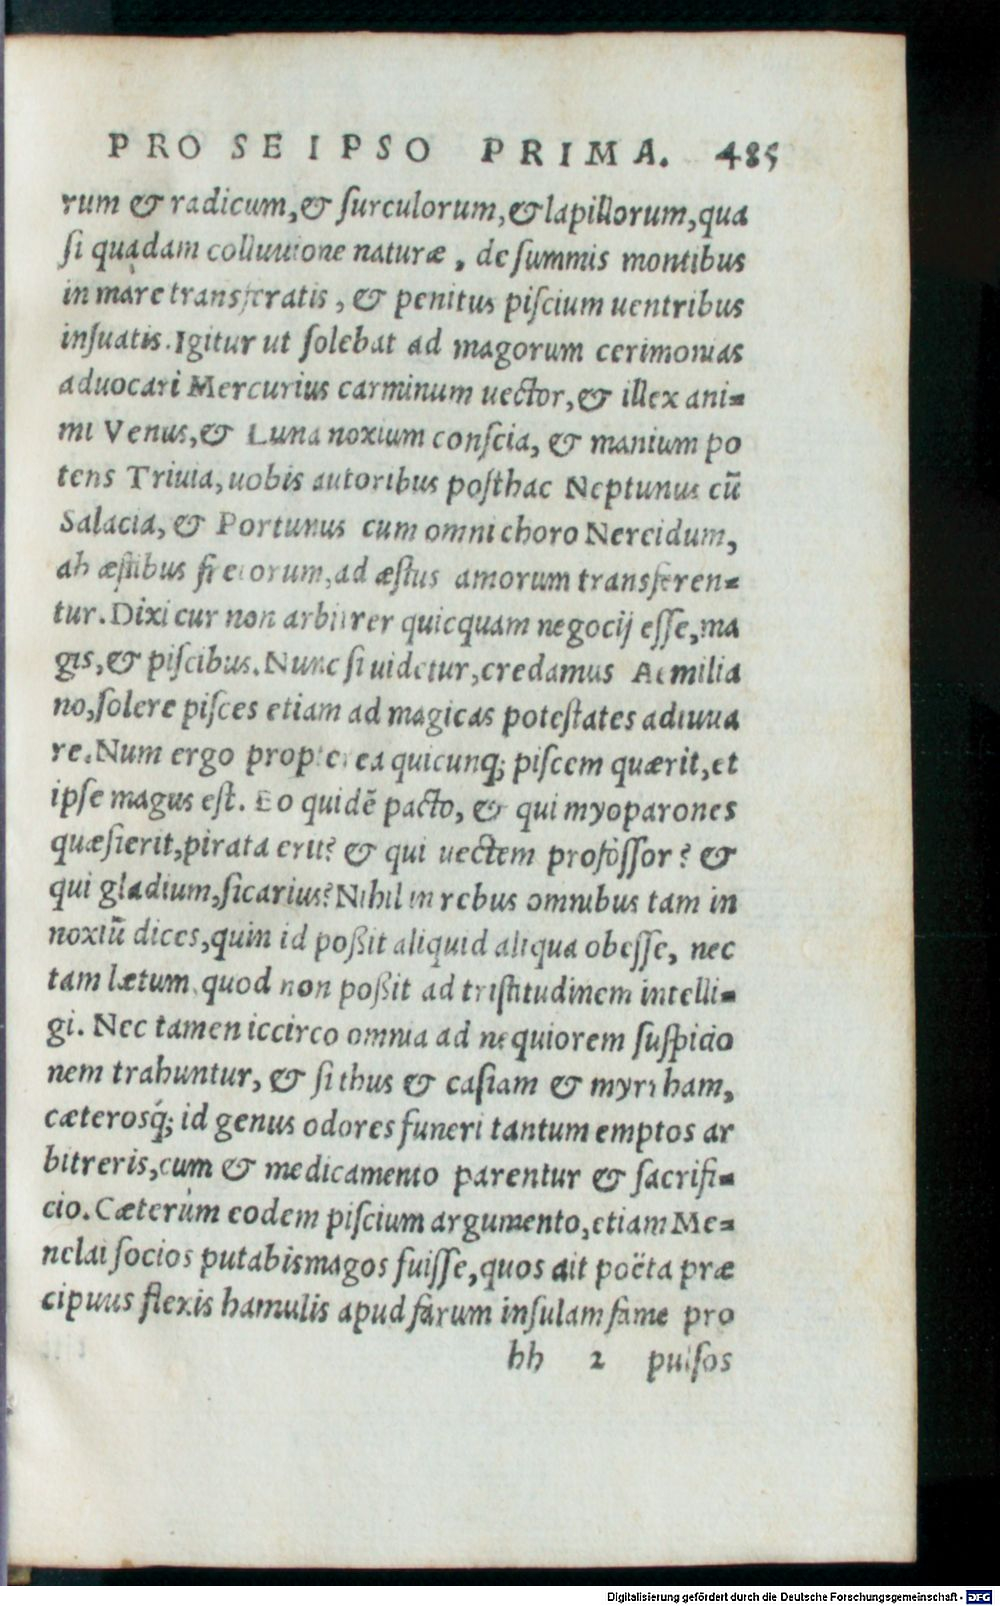 PRO SE IPSO PRIMA. 485
rum & radicum, & ſurculorum, & lapillorum, qua
ſi quadam colluuione naturæ, de ſummis montibus
in mare transferatis, & penitus piſcium uentribus
inſuatis. Igitur ut ſolebat ad magorum cerimonias
aduocari Mercurius carminum uector, & illex ani=
mi Venus, & Luna noxium conſcia, & manium po
tens Triuia, uobis autoribus poſthac Neptunus cū
Salacia, & Portunus cum omni choro Nereidum,
ab æſtibus fretorum, ad æſtus amorum transferen=
tur. Dixi cur non arbitrer quicquam negocij eſſe, ma
gis, & piſcibus. Nunc ſi uidetur, credamus Aemilia
no, ſolere piſces etiam ad magicas poteſtates adiuua
re. Num ergo propterea quicunq; piſcem quærit, et
ipſe magus eſt. Eo quidē pacto, & qui myoparones
quæſierit, pirata erit? & qui uectem profoſſor? &
qui gladium, ſicarius? Nihil in rebus omnibus tam in
noxiū dices, quin id poßit aliquid aliqua obeſſe, nec
tam lætum, quod non poßit ad triſtitudinem intelli=
gi. Nec tamen iccirco omnia ad nequiorem ſuſpicio
nem trahuntur, & ſi thus & caſiam & myrrham,
cæterosq́; id genus odores funeri tantum emptos ar
bitreris, cum & medicamento parentur & ſacrifi=
cio. Cæterùm eodem piſcium argumento, etiam Me=
nelai ſocios putabis magos fuiſſe, quos ait poëta præ
cipuus flexis hamulis apud farum inſulam fame pro
hh 2 pulſos
Digitalisierung gefördert durch die Deutsche Forschungsgemeinschaft - DFG